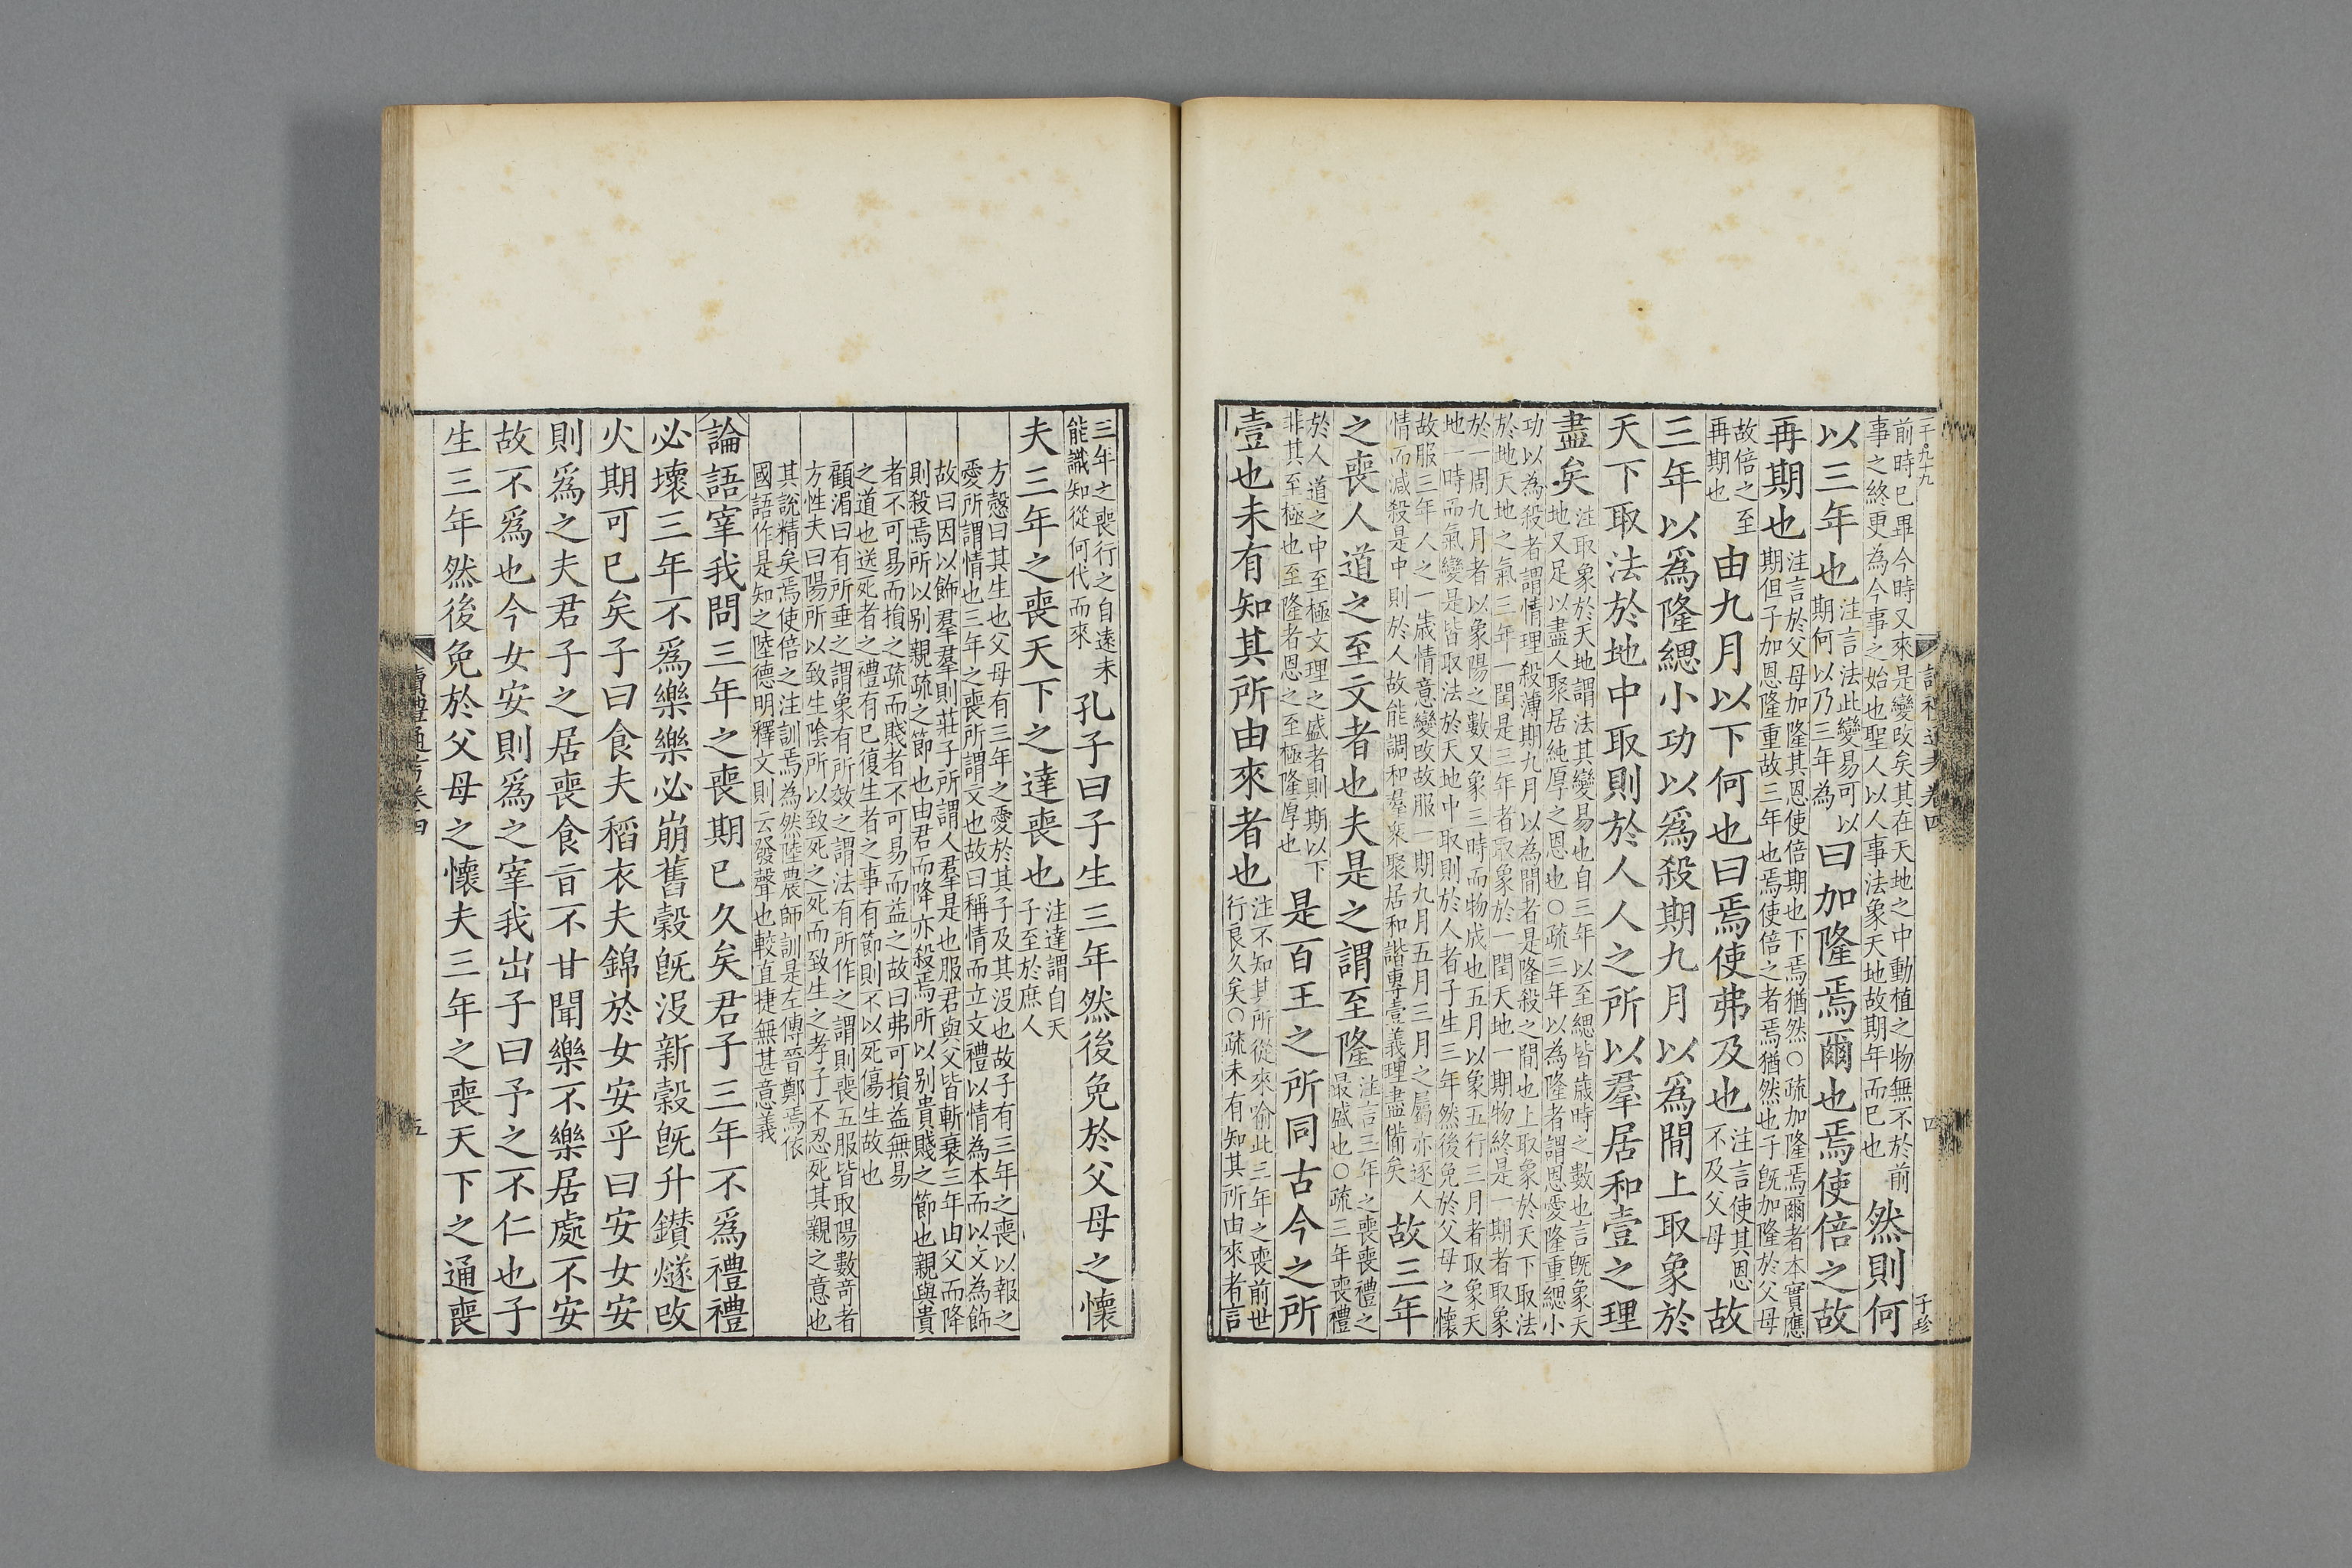 二千九十九
讀禮通考卷四
四
子珍
前時已畢今時又來是變改矣其在天地之中動植之物無不於前
事之終更為今事之始也聖人以人事法象天地故期年而已也
然則何
以三年也
注言法此變易可以
期何以乃三年為
曰加隆焉爾也焉使倍之故
再期也
注言於父母加隆其恩使倍期也下焉猶然○疏加隆焉爾者本實應
期但子加恩隆重故三年也焉使倍之者焉猶然也子旣加隆於父母
故倍之至
再期也
由九月以下何也曰焉使弗及也
注言使其恩
不及父母
故
三年以爲隆緦小功以爲殺期九月以爲閒上取象於
天下取法於地中取則於人人之所以羣居和壹之理
盡矣
注取象於天地謂法其變易也自三年以至緦皆歲時之數也言旣象天
地又足以盡人聚居純厚之恩也○疏三年以為隆者謂恩愛隆重緦小
功以為殺者謂情理殺薄期九月以為閒者是隆殺之間也上取象於天下取法
於地天地之氣三年一閏是三年者取象於一閏天地一期物終是一期者取象
於一周九月者以象陽之數又象三時而物成也五月以象五行三月者取象天
地一時而氣變是皆取法於天地中取則於人者子生三年然後免於父母之懷
故服三年人之一歲情意變改故服一期九月五月三月之屬亦逐人
情而減殺是中則於人故能調和羣衆聚居和諧專壹義理盡備矣
故三年
之喪人道之至文者也夫是之謂至隆
注言三年之喪喪禮之
最盛也○疏三年喪禮
於人道之中至極文理之盛者則期以下
非其至極也至隆者恩之至極隆厚也
是百王之所同古今之所
壹也未有知其所由來者也
注不知其所從來喻此三年之喪前世
行艮久矣○疏未有知其所由來者言
三年之喪行之自遠未
能識知從何代而來
孔子曰子生三年然後免於父母之懷
夫三年之喪天下之達喪也
注達謂自天
子至於庶人
方愨曰其生也父母有三年之愛於其子及其沒也故子有三年之喪以報之
愛所謂情也三年之喪所謂文也故曰稱情而立文禮以情為本而以文為飾
故曰因以飾羣羣則莊子所謂人羣是也服君與父皆斬衰三年由父而降
則殺焉所以别親疏之節也由君而降亦殺焉所以别貴賤之節也親與貴
者不可易而損之疏而賤者不可易而益之故曰弗可損益無易
之道也送死者之禮有已復生者之事有節則不以死傷生故也
顧湄曰有所垂之謂象有所效之謂法有所作之謂則喪五服皆取陽數奇者
方性夫曰陽所以致生陰所以致死之死而致生之孝子不忍死其親之意也
其說精矣焉使倍之注訓焉為然陸農師訓是左傳晉鄭焉依
國語作是知之陸德明釋文則云發聲也較直捷無甚意義
論語宰我問三年之喪期已久矣君子三年不爲禮禮
必壞三年不爲樂樂必崩舊穀旣沒新穀旣升鑚燧改
火期可已矣子曰食夫稻衣夫錦於女安乎曰安女安
則爲之夫君子之居喪食旨不甘聞樂不樂居處不安
故不爲也今女安則爲之宰我出子曰予之不仁也子
生三年然後免於父母之懷夫三年之喪天下之通喪
讀禮通考卷四
五